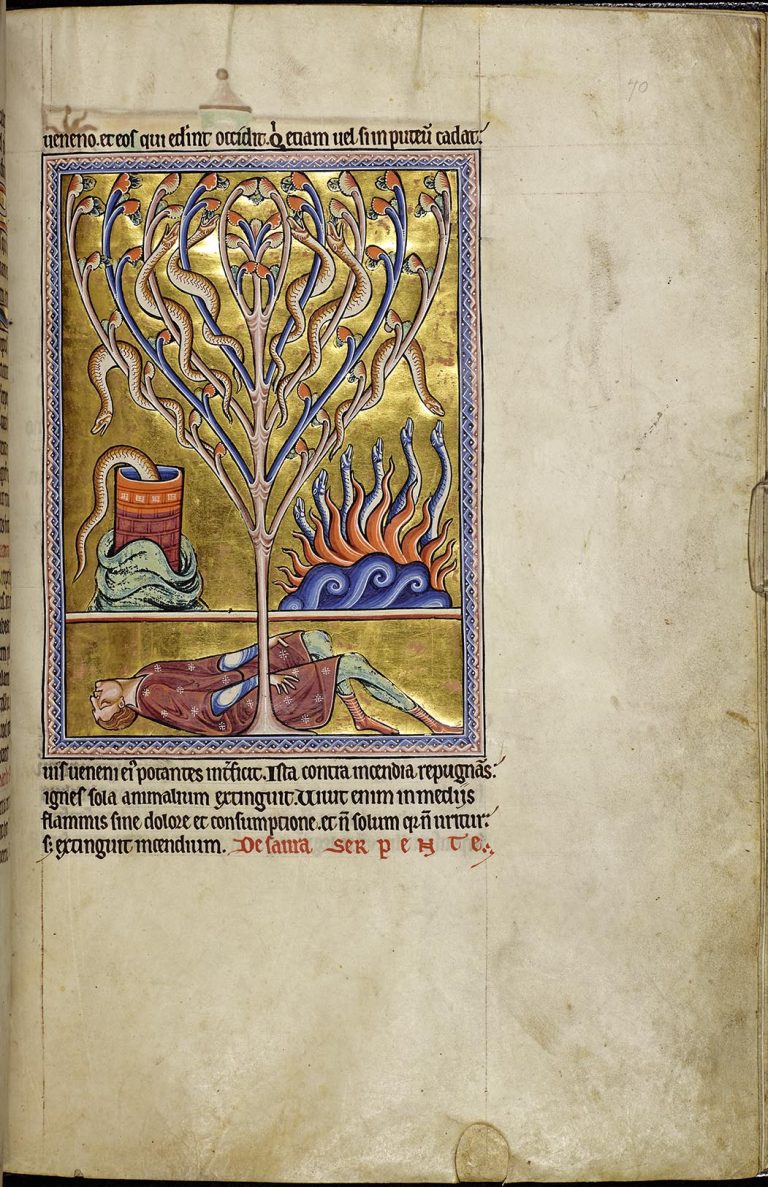 40
ueneno. et eos qui ederint occidit. Q̊ etiam uel si in puteū cadat:
uis ueneni eiꝰ potantes int̄ficit. Ista contra incendia repugnās:
ignes sola animalium extinguit. Uiuit enim in medijs
flammis sine dolore et consumptione. et ñ solum qr ñ uritur:
s; extinguit incendium. De saura serpente:.